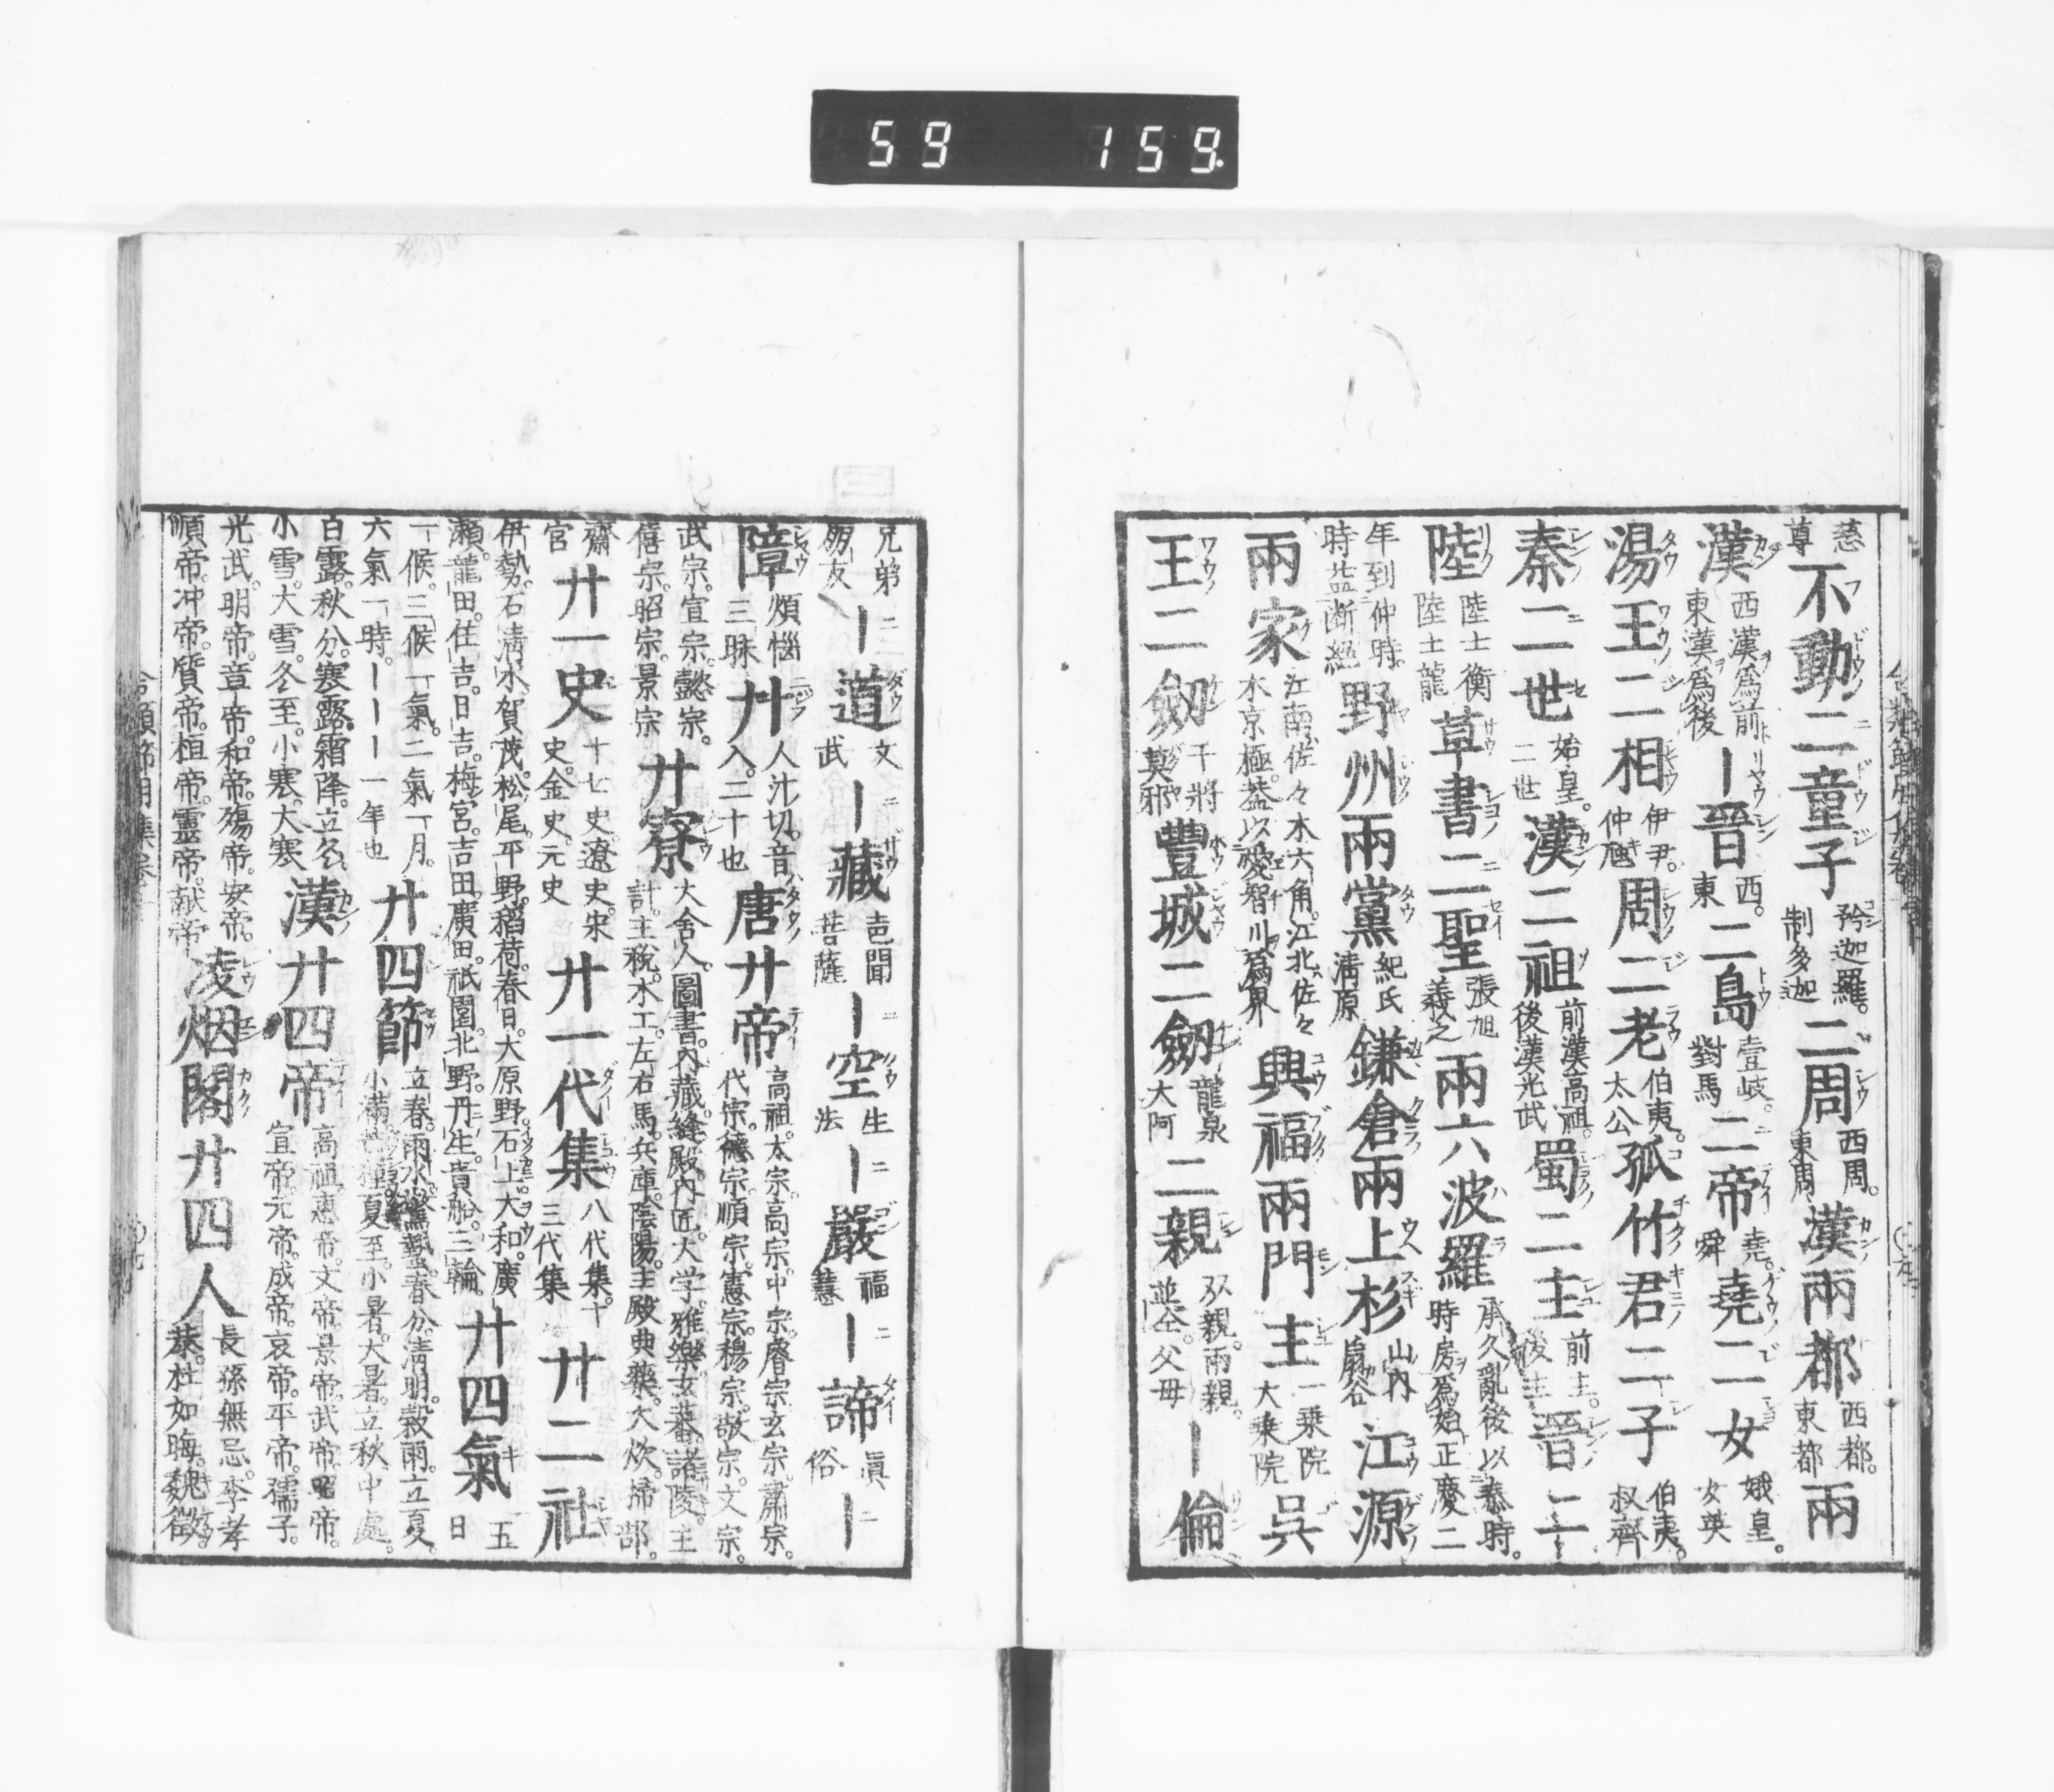 59 159.
慈尊 不動二童子 矜迦羅。制多迦 二周 西周。東周 漢兩都 西都。東都 兩
漢 西漢ヲ爲前ト 東漢ヲ爲後 ー晉 西。東 二島 壹岐。對馬 二帝 堯。舜 堯二女 娥皇。女英
湯王二相 伊尹。仲虺 周二老 伯夷。太公 孤竹君二子 伯夷。叔齊
秦二世 始皇。二世 漢二祖 前漢高祖。後漢光武 蜀二主 前主。後主 晉二
陸 陸士衡 陸士龍 草書二聖 張旭 羲之 兩六波羅 承久亂後以泰時。時房爲始正慶二
年到仲時。時益断絕 野州兩黨 紀氏 淸原 鎌倉兩上杉 山内 扇谷 江源
兩家 江南佐々木六角。江北佐々木京極。蓋以愛智川爲界 興福兩門主 一乗院 大乗院 呉
王二劔 干將 莫邪 豐城二劔 龍泉 大阿 二親 双親。兩親。並仝。父母 ー倫
兄弟 朋友 ー道 文 武 ー藏 声聞 菩薩 ー空 生 法 ー嚴 福 慧 ー諦 眞 俗 ー
障 煩惱 三昧 廿 人汁切。音入。二十也 唐廿帝 高祖。太宗。高宗。中宗。睿宗。玄宗。肅宗。代宗。德宗。順宗。憲宗。穆宗。敬宗。文宗。
武宗。宣宗。懿宗。僖宗。昭宗。景宗 廿寮 大舍人。圖書。內藏。縫殿。內匠。大学。雅樂。玄蕃。諸陵。主計。主稅。木工。左右馬。兵庫。陰陽。主殿。典藥。大炊。掃部。
齋宮 廿一史 十七史。遼史。宋史。金史。元史 廿一代集 八代集。十三代集 廿二社
伊勢。石淸水。賀茂。松尾。平野。稻荷。春日。大原野。石上。大和。廣瀬。龍田。住吉。日吉。梅宮。吉田。廣田。祇園。北野。丹生。貴船。三輪。 廿四氣 五日
一候。三候一氣。二氣一月。六氣一時。ーーー一年也 廿四節 立春。雨水。驚蟄。春分。淸明。穀雨。立夏。小滿。芒種。夏至。小暑。大暑。立秋。中處。
白露。秋分。寒露。霜降。立冬。小雪。大雪。冬至。小寒。大寒 漢廿四帝 高祖。惠帝。文帝。景帝。武帝。昭帝。宣帝。元帝。成帝。哀帝。平帝。孺子。
光武。明帝。章帝。和帝。殤帝。安帝。順帝。冲帝。質帝。桓帝。靈帝。献帝 凌烟閣廿四人 長孫無忌。李孝恭。杜如晦。魏徵。